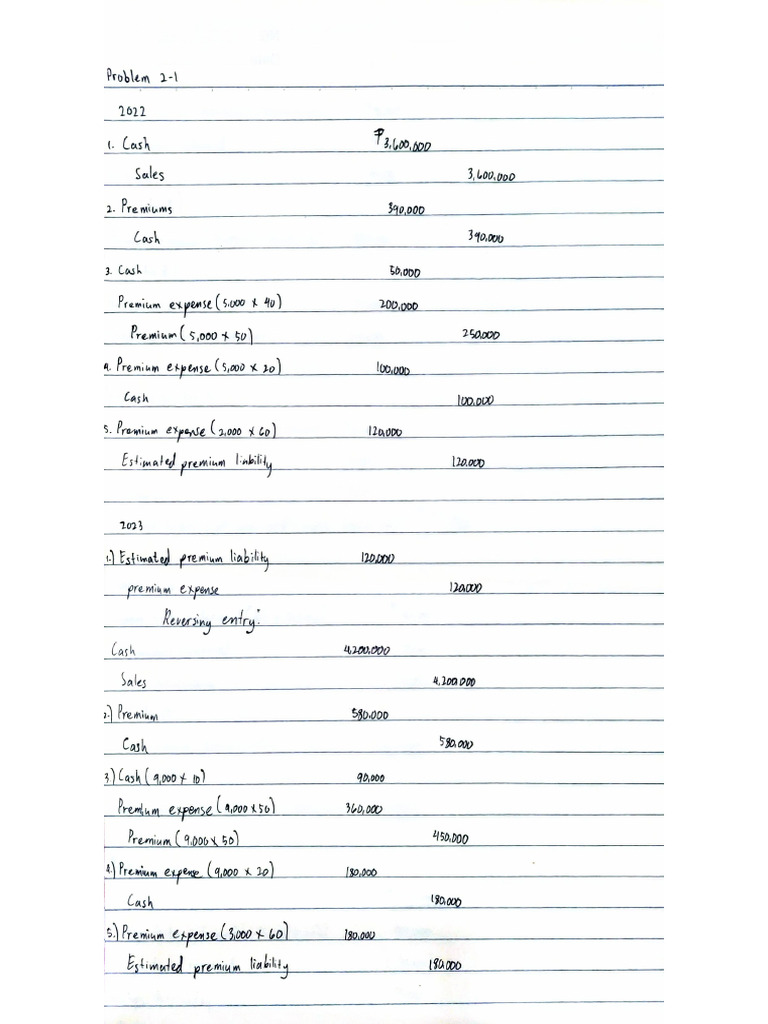 Problem 2-1
2022
1. Cash ₱3,600,000
Sales 3,600.000
2. Premiums 390,000
Cash 390,000
3. Cash 50,000
Premium expense (5,000 x 40) 200,000
Premium (5,000 x 50) 250,000
4. Premium expense (5,000 x 20) 100,000
Cash 100,000
5. Premium expense (2,000 x 60) 120,000
Estimated premium liability 120,000
2023
1.) Estimated premium liability 120,000
premium expense 120,000
Reversing entry:
Cash 4,200,000
Sales 4,200,000
2.) Premium 580,000
Cash 580,000
3.) Cash (9,000 x 10) 90,000
Premium expense (9,000 x 50) 360,000
Premium (9,000 x 50) 450,000
4.) Premium expense (9,000 x 20) 180,000
Cash 180,000
5.) Premium expense (3,000 x 60) 180,000
Estimated premium liability 180,000